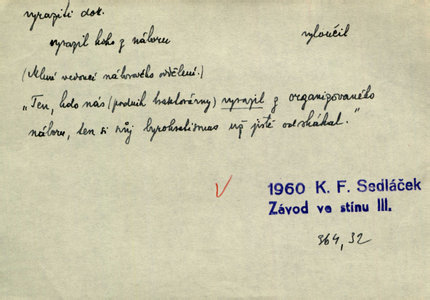 vyraziti dok.
vyrazil koho z náboru vyloučil
(Mluví vedoucí náborového oddělení.)
„Ten, kdo nás (podnik traktorárny) vyrazil z organizovaného
náboru, ten si svůj byrokratismus už jistě odskákal.“
1960 K. F. Sedláček
Závod ve stínu III.
364, 32